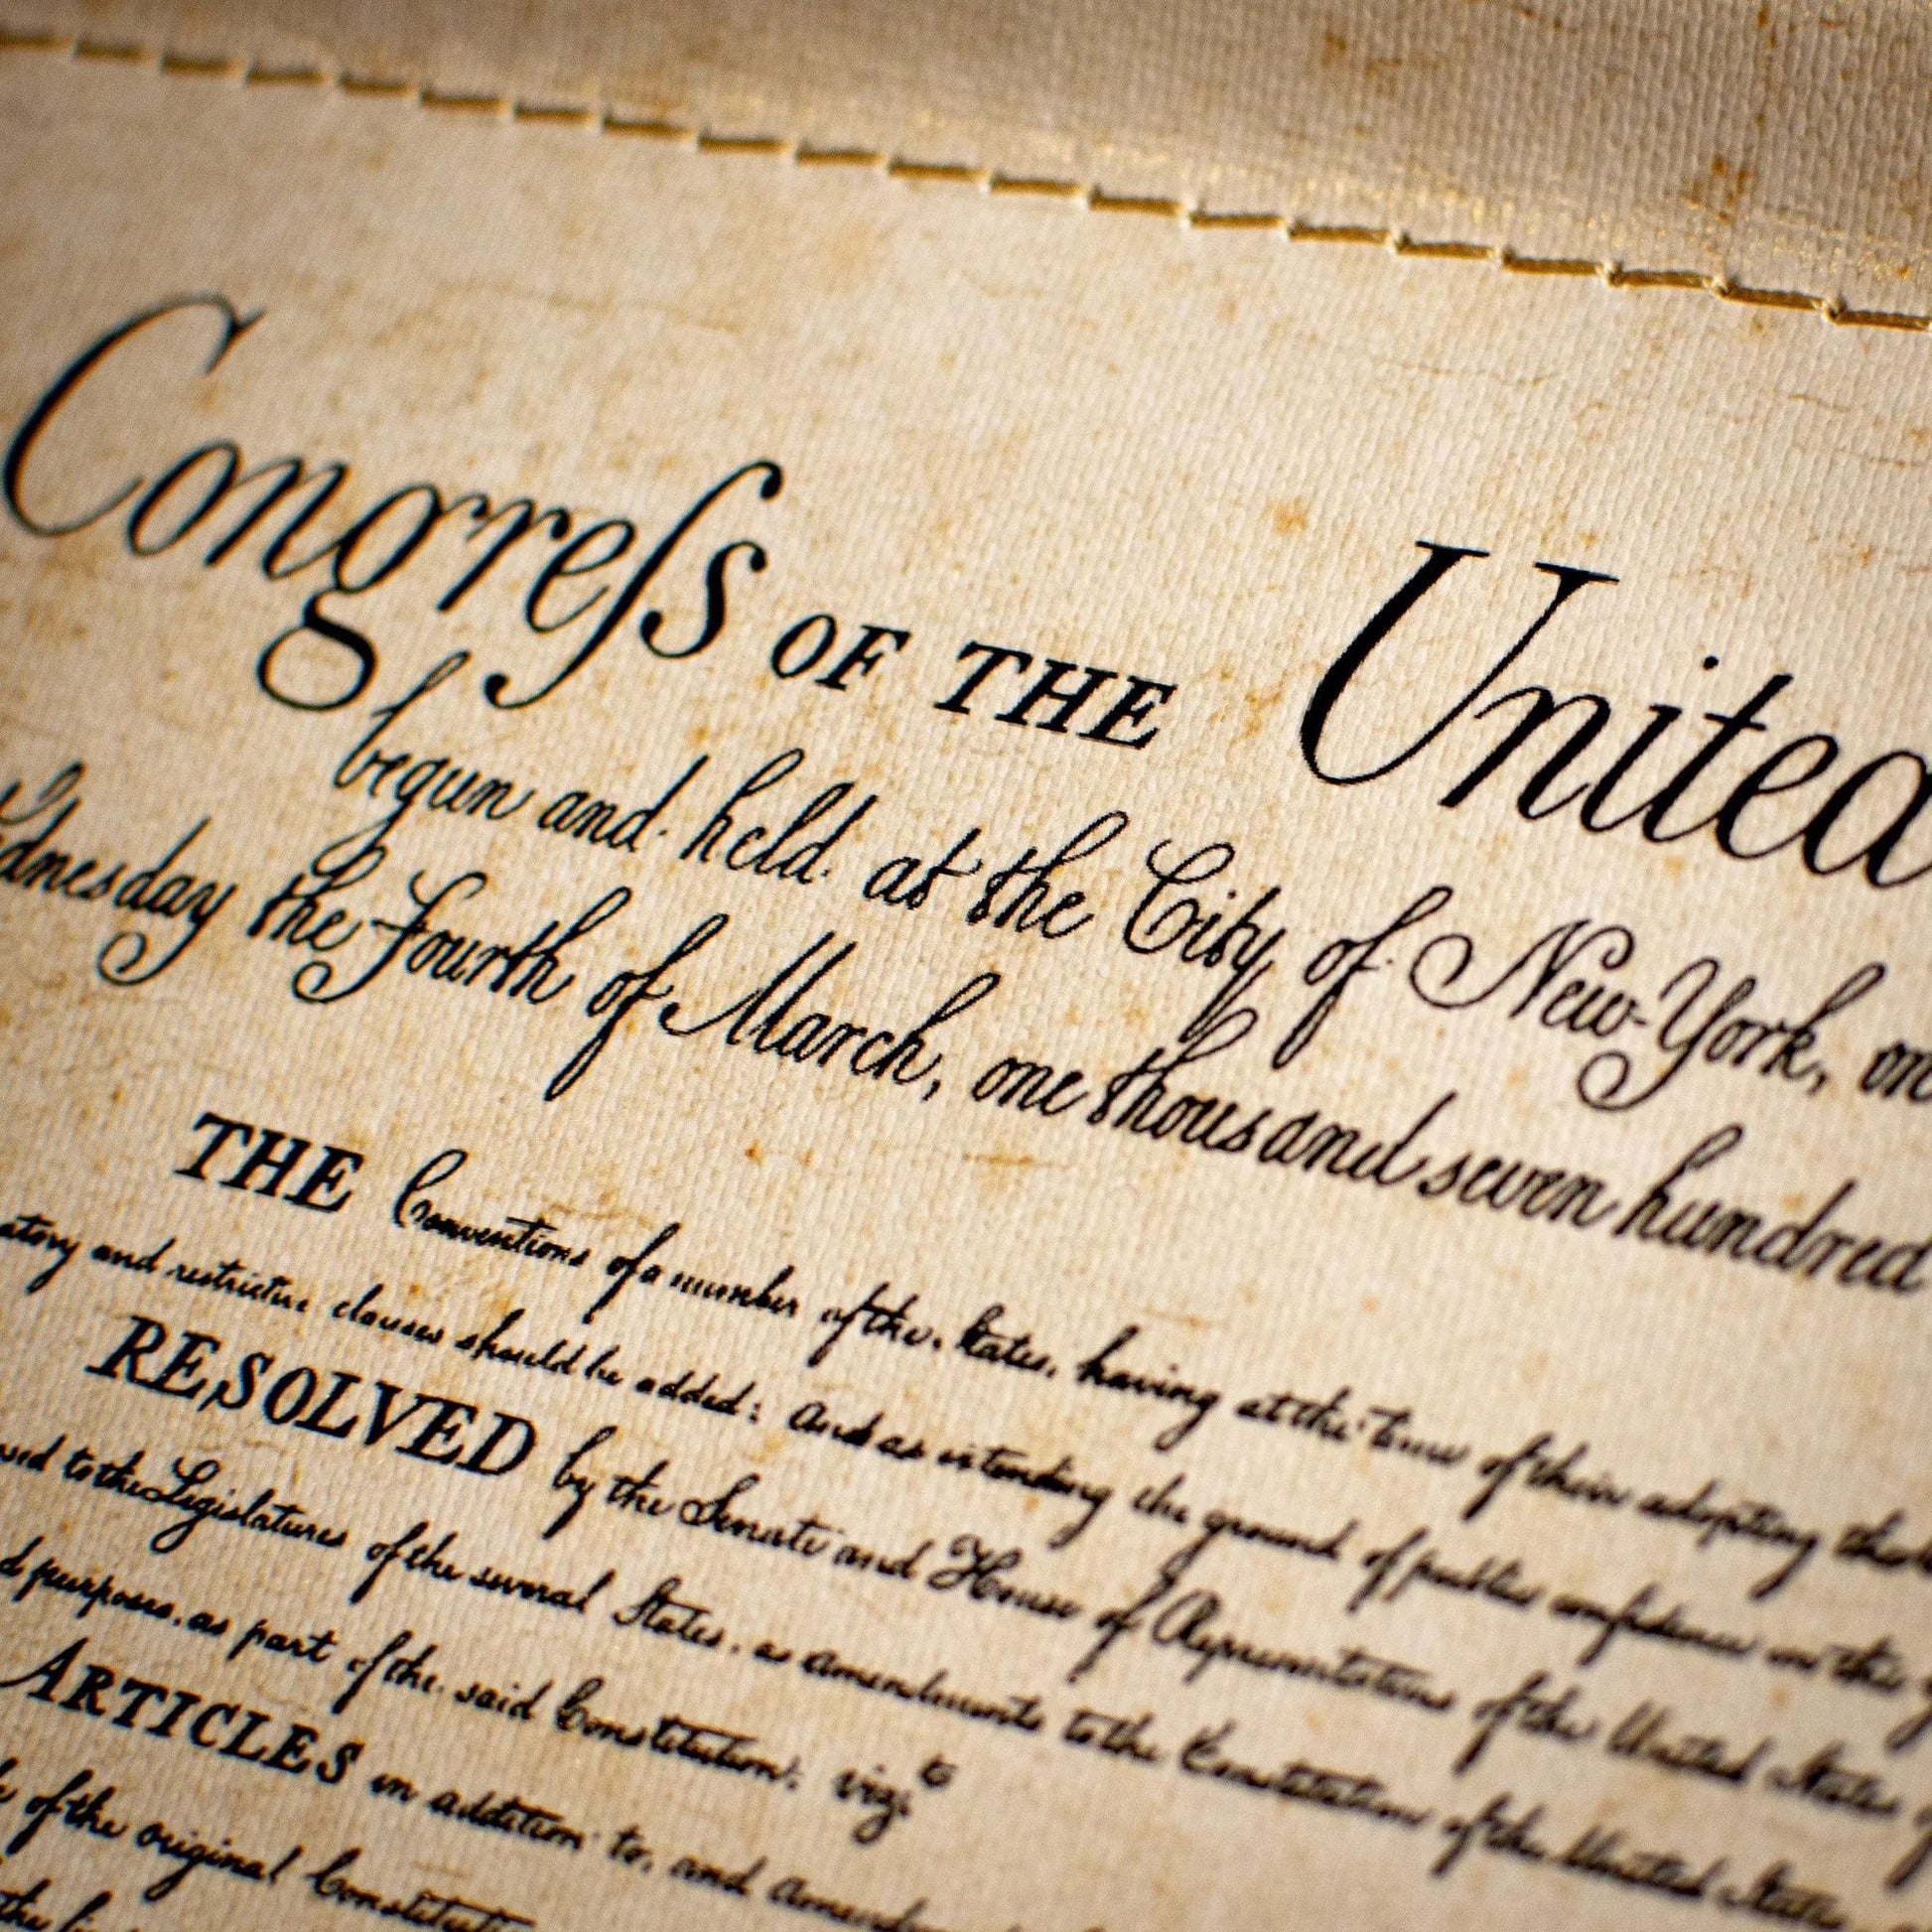 Congreſs OF THE United
begun and held at the City of New-York, on
dnesday the Fourth of March, one thousand seven hundred
THE Conventions of a number of the States, having at the time of their adopting the
atory and restrictive clauses should be added: And as extending the ground of public confidence in the
RESOLVED by the Senate and House of Representatives of the United States
to the Legislatures of the several States, as amendments to the Constitution of the United States
purposes, as part of the said Constitution; vizt.
ARTICLES in addition to, and Amend
of the original Constitution
the